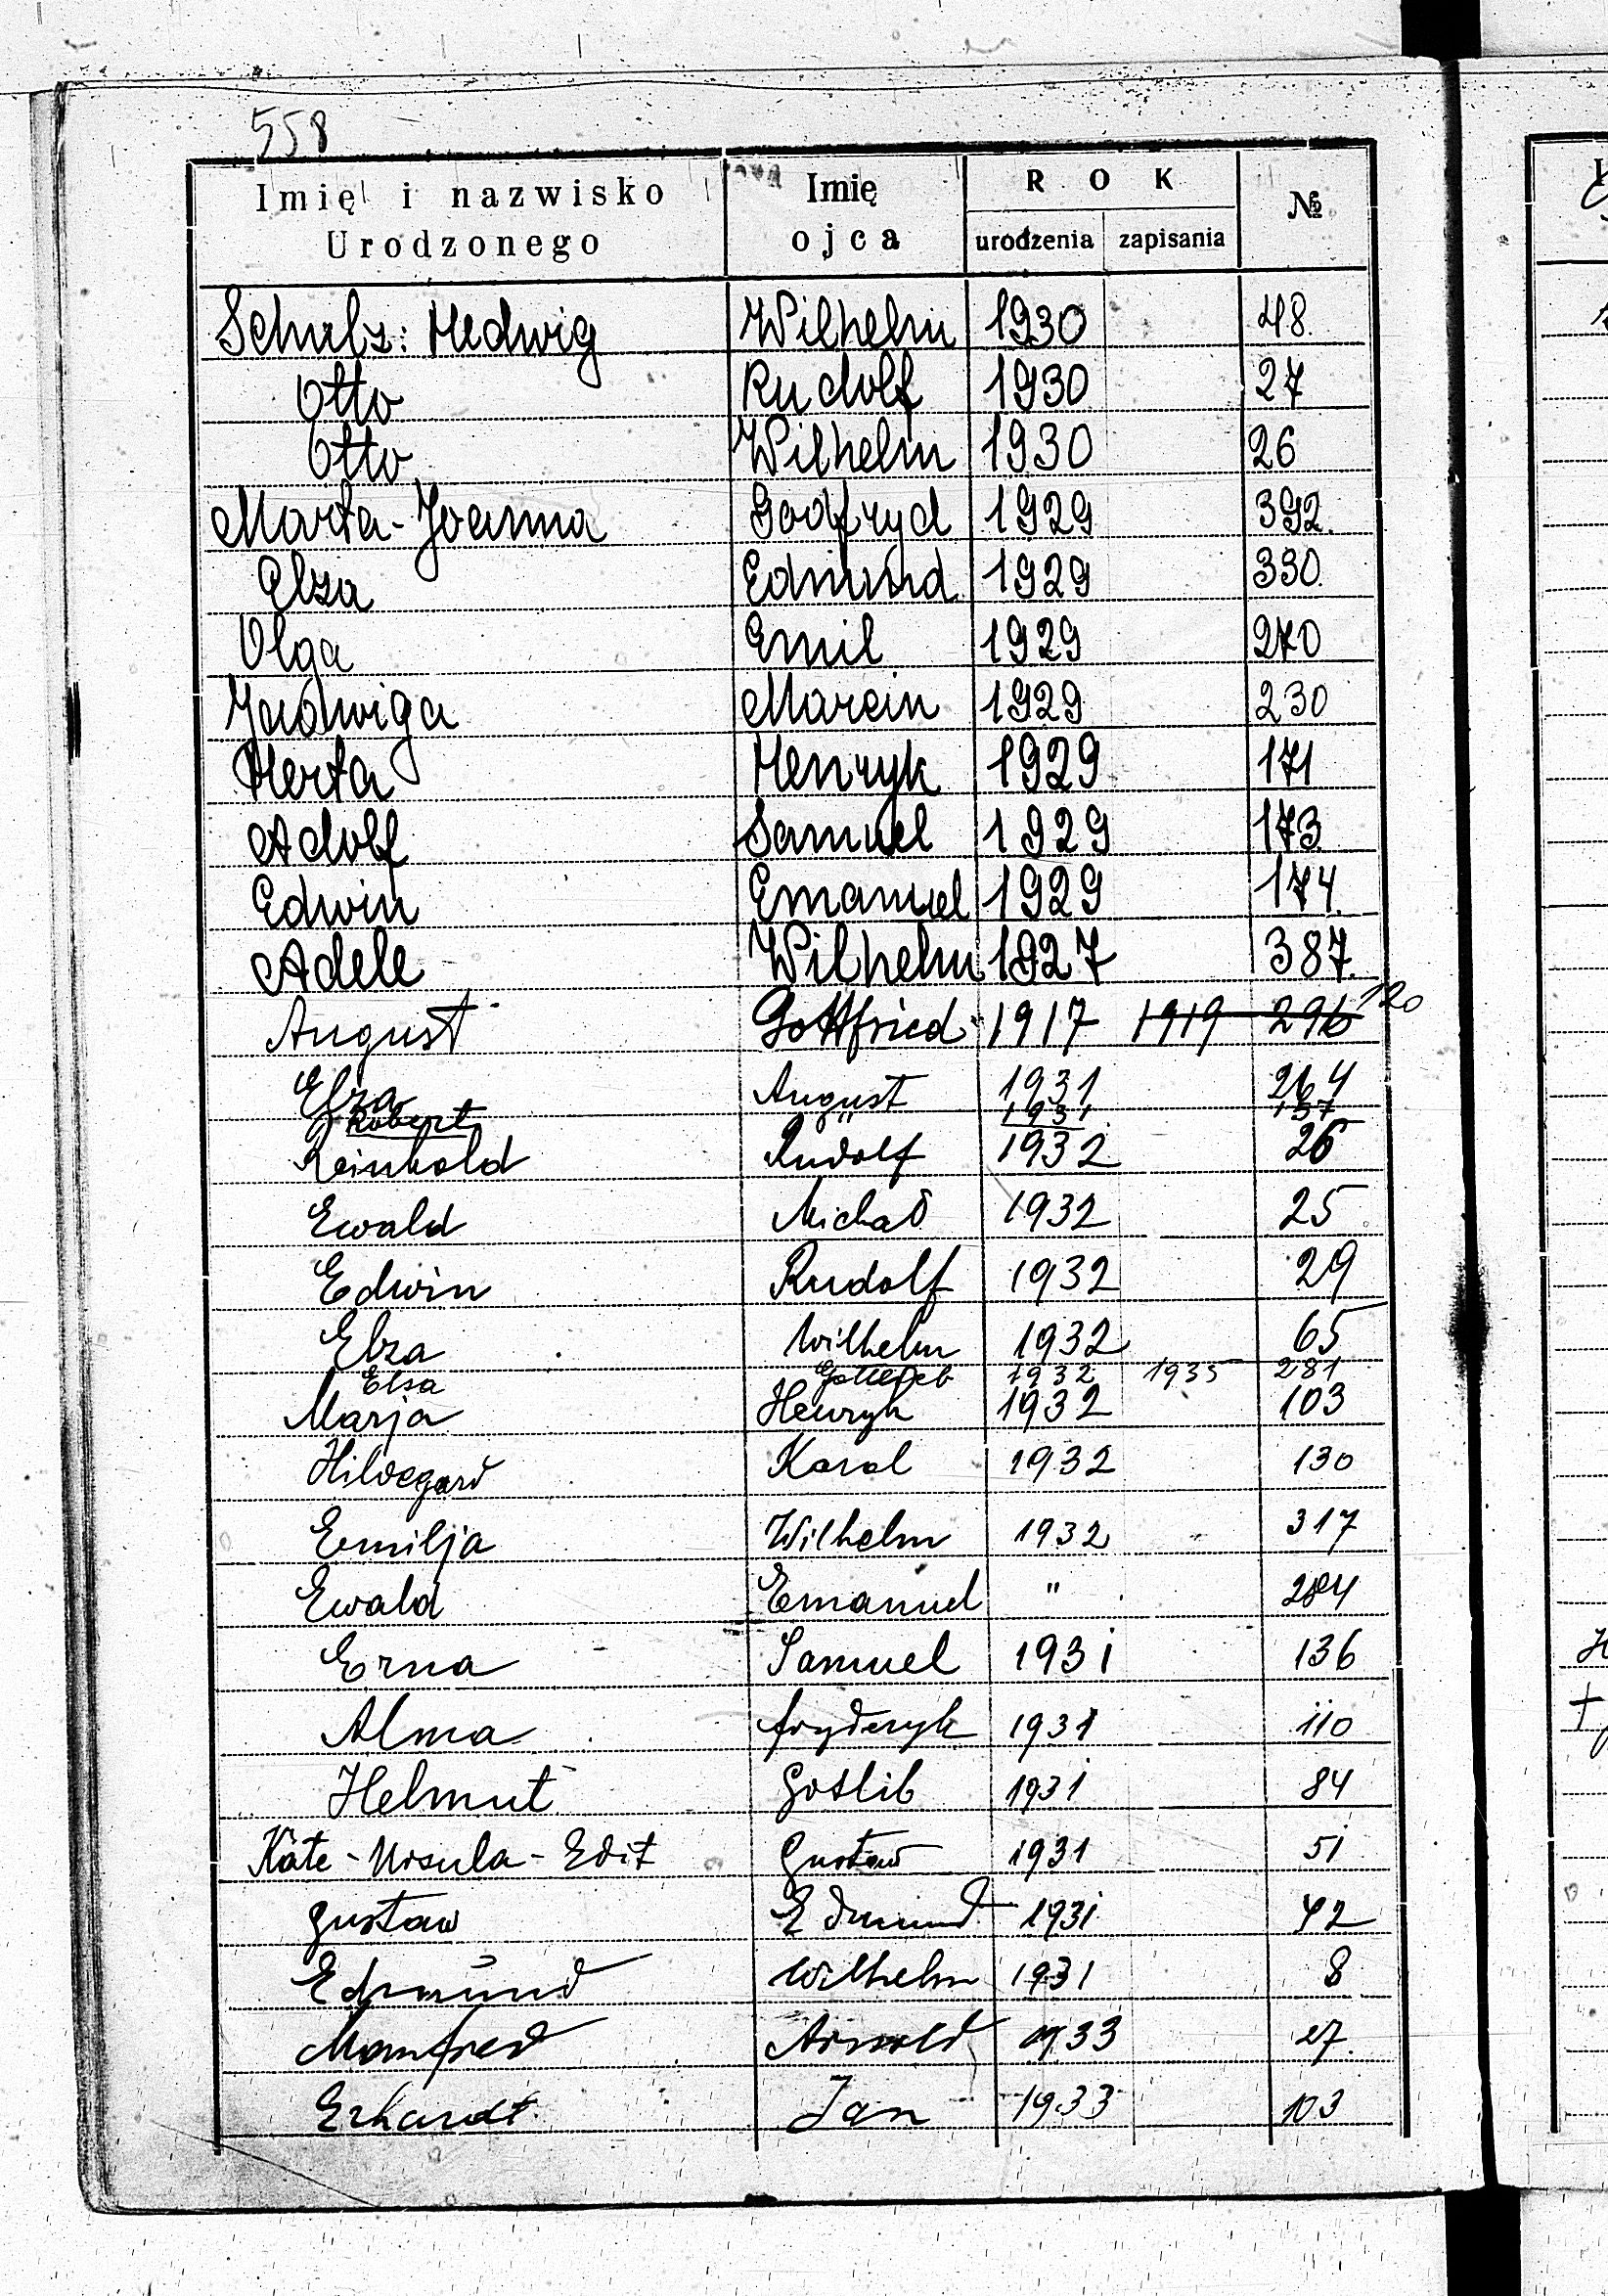 558
Imię i nazwisko Urodzonego Imię ojca ROK urodzenia zapisania №
Schulz: Hedwig Wilhelm 1930 48.
Otto Rudolf 1930 27
Otto Wilhelm 1930 26
Marta-Joanna Godfryd 1929 392.
Elza Edmund 1929 330.
Olga Emil 1929 270
Jadwiga Marcin 1929 230
Herta Henryk 1929 171
Adolf Samuel 1929 173.
Edwin Emanuel 1929 174.
Adele Wilhelm 1927 387.
August Gottfried 1917 1919 296 120
Elza August 1931 264
Robert " 1931 157
Reinhold Rudolf 1932 26
Ewald Michał 1932 25
Edwin Rudolf 1932 29
Elza Wilhelm 1932 65
Elsa Gottlieb 1932 1935 281
Marja Henryk 1932 103
Hildegard Karol 1932 130
Emilja Wilhelm 1932 317
Ewald Emanuel " 284
Erna Samuel 1931 136
Alma fryderyk 1931 110
Helmut Gotlib 1931 84
Käte-Ursula-Edit Gustaw 1931 51
Gustaw Edmund 1931 42
Edmund Wilhelm 1931 8
Manfred Arnold 1933 27.
Erhardt Jan 1933 103